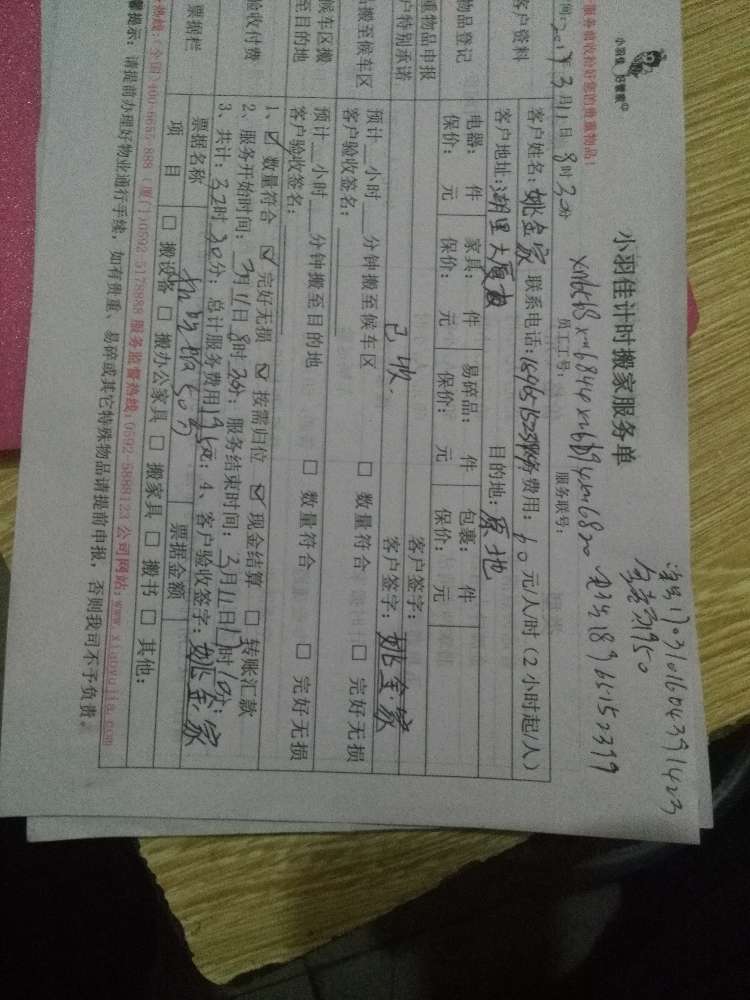 小羽佳 好管家
服务前收拾好您的贵重物品!
小羽佳计时搬家服务单
海乌170310160439 1423
全意家950
电话18965150399
员工工号:
服务联号:
3月11日8时30分
客户资料
客户姓名:姚金家 联系电话: 服务费用:60元/人/时(2小时起/人)
客户地址:湖里大厦 目的地:原地
物品登记
电器: 件 家具: 件 易碎品: 件 包裹: 件
保价: 元 保价: 元 保价: 元 保价: 元
重物品申报
客户签字:
户特别承诺
已收. 客户签字:姚金家
搬至候车区
预计__小时__分钟搬至候车区 □ 数量符合 □ 完好无损
客户验收签名:
候车区搬至目的地
预计__小时__分钟搬至目的地 □ 数量符合 □ 完好无损
客户验收签名:
验收付费
1、☑ 数量符合 ☑ 完好无损 ☑ 按需归位 ☑ 现金结算 □ 转账汇款
2、服务开始时间:3月11日8时30分;服务结束时间:3月11日
3、共计: 时30分;总计服务费用1950元;4、客户验收签字:姚金家
票据栏
票据名称 票据金额
项目 □ 搬设备 □ 搬办公家具 □ 搬家具 □ 搬书 □ 其他:
热线:(全国)400-6655-888 (厦门)0592-5178888 服务监督热线:0592-5888123 公司网站:www.xiaoyujia.com
馨提示:请提前办理好物业通行手续,如有贵重、易碎或其它特殊物品请提前申报,否则我司不予负责。